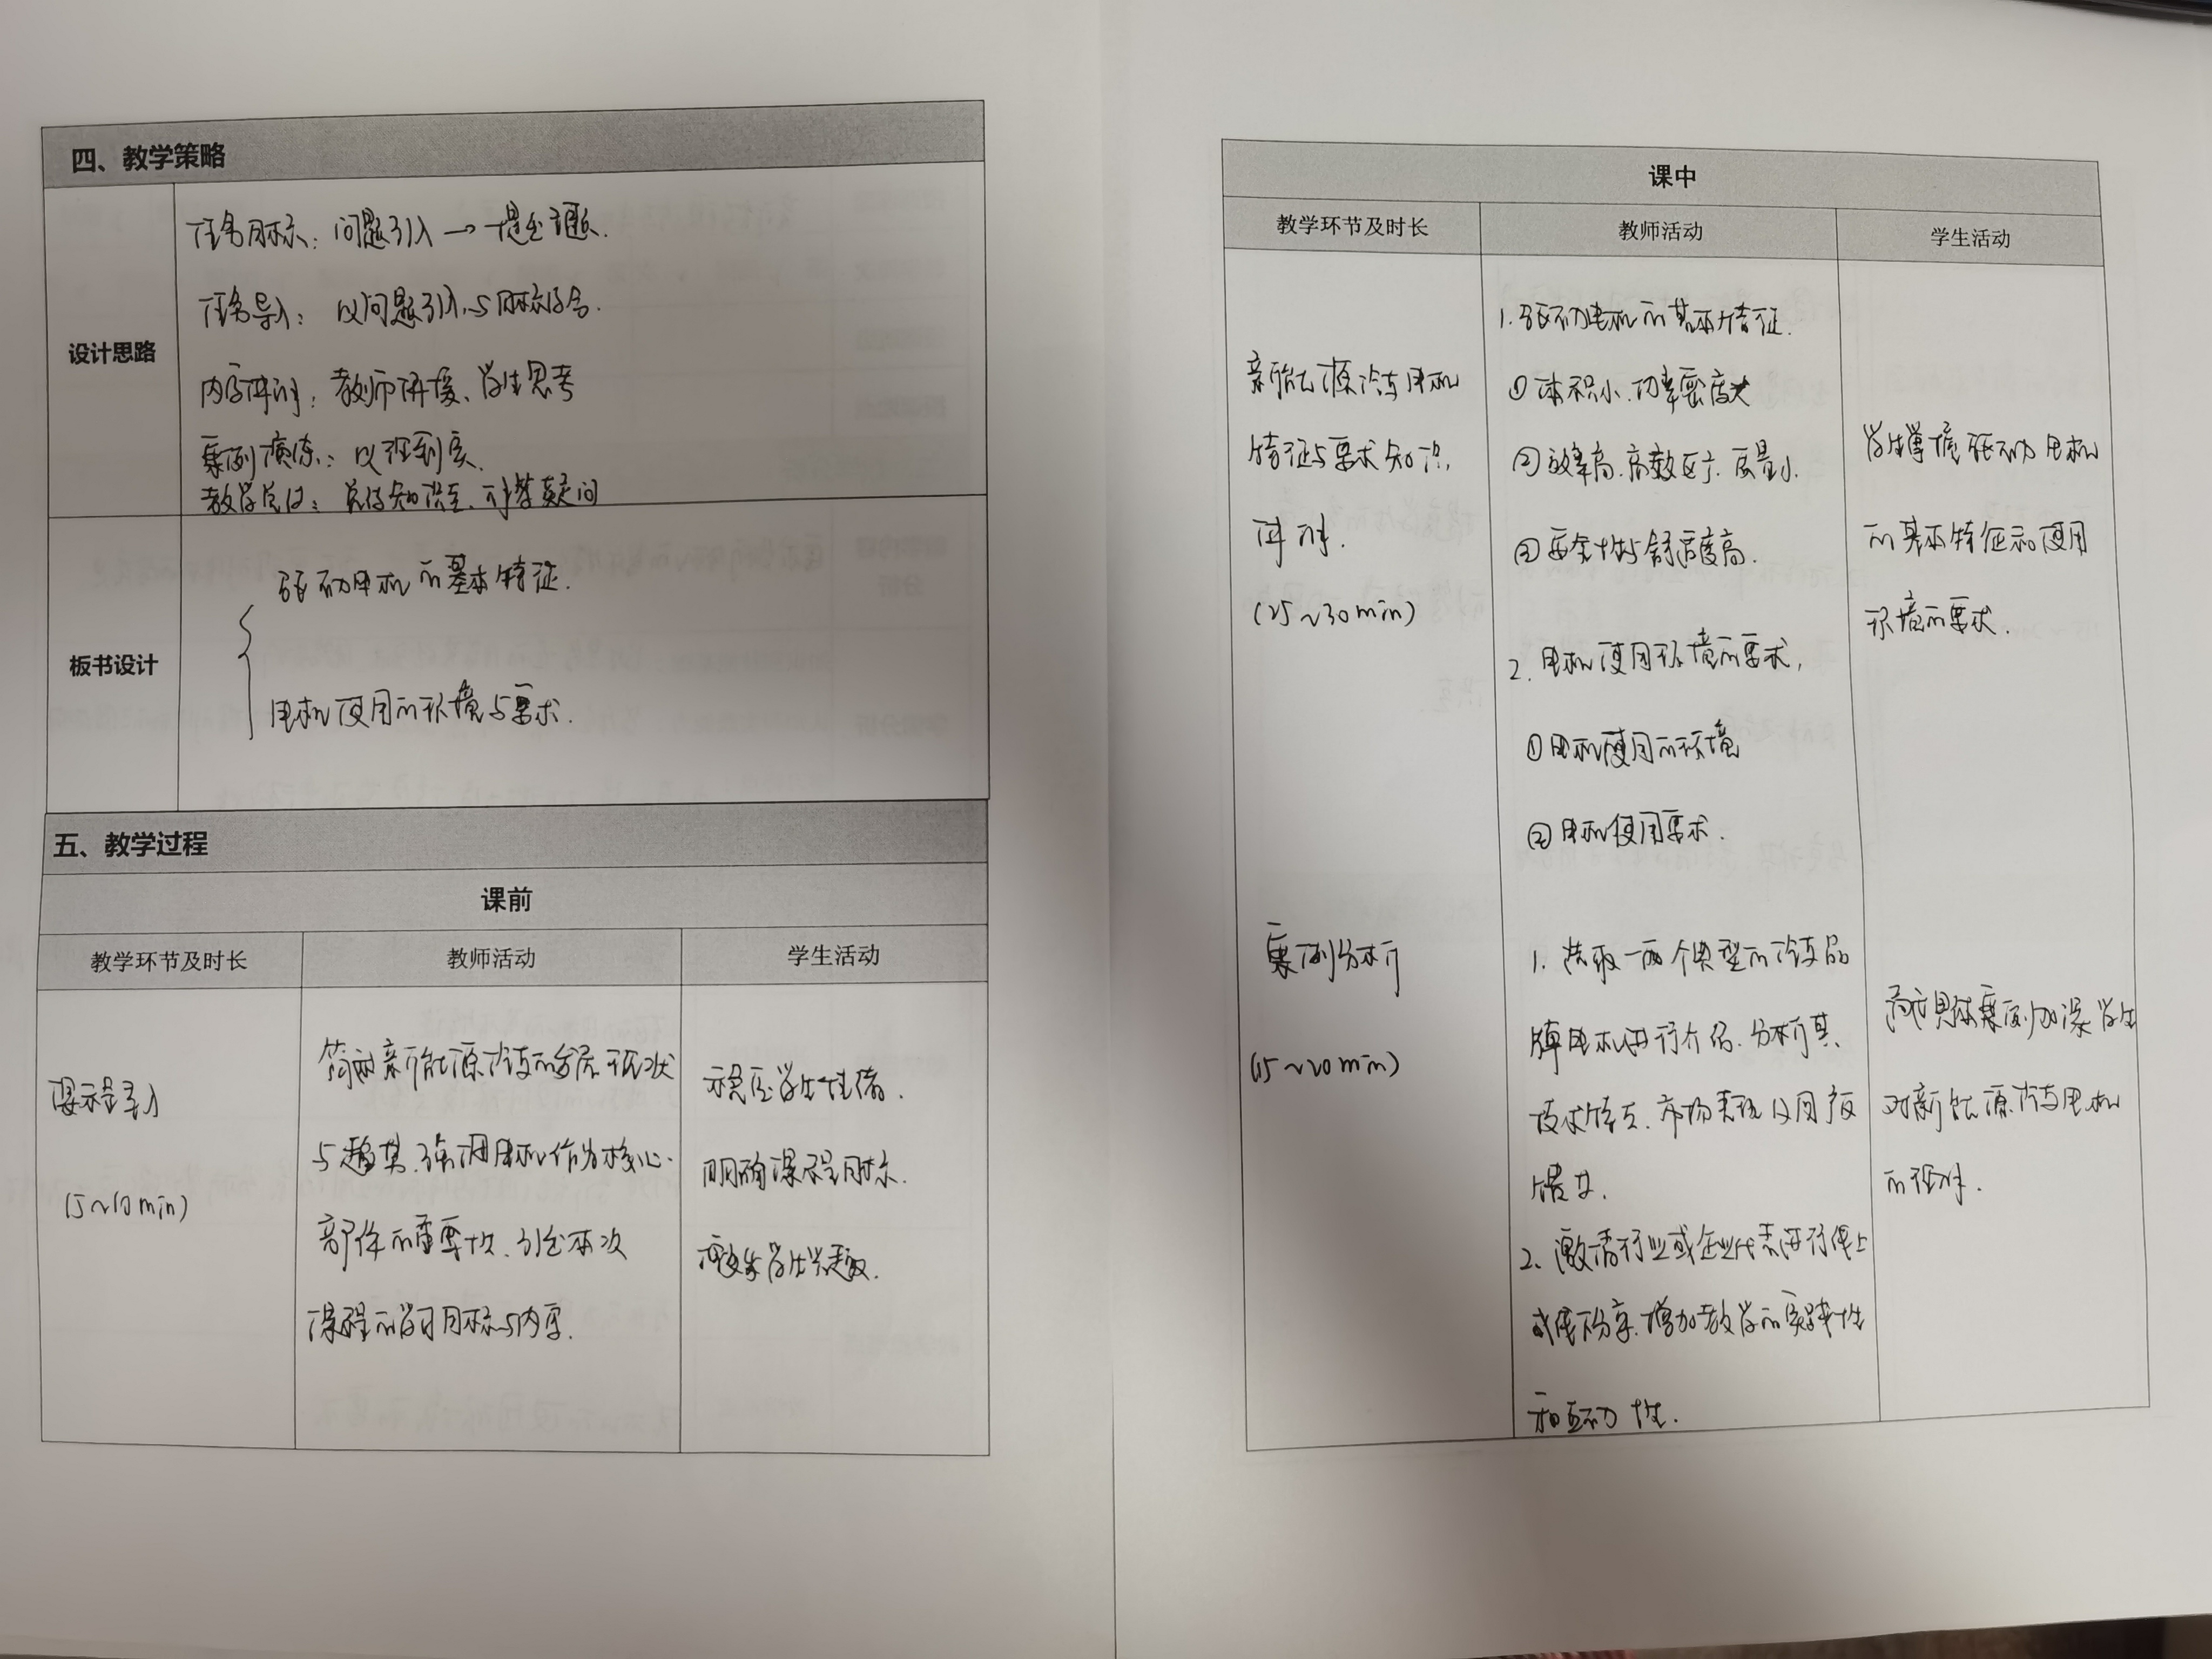 四、教学策略
设计思路
任务目标：问题引入→提出主题.
任务导入：以问题引入,与目标结合.
内容讲解：教师讲授、学生思考
案例演练：以理到实.
教学总结：总结知识点、解答疑问
板书设计
驱动电机的基本特征.
电机使用的环境与要求.
五、教学过程
课前
教学环节及时长
教师活动
学生活动
导入
(5~10min)
简述新能源汽车的发展现状
与趋势,强调电机作为核心
部件的重要性、引出本次
课程的学习目标与内容.
稳定学生情绪.
明确课程目标.
激发学生兴趣.
课中
教学环节及时长
教师活动
学生活动
新能源汽车电机
特征与要求知识
讲解.
(25~30min)
1.驱动电机的基本特征.
①体积小、功率密度大
②效率高、高效区广、质量小.
③安全性与舒适度高.
2.电机使用环境的要求,
①电机使用的环境
②电机使用要求.
学生掌握驱动电机
的基本特征和使用
环境的要求.
案例分析
(15~20min)
1.选取一两个典型的汽车品
牌电机进行介绍、分析其
技术特点、市场表现及用户反
馈等.
2、邀请行业或企业代表进行线上
或线下分享,增加教学的实践性
和互动性.
通过具体案例加深学生
对新能源汽车电机
的理解.